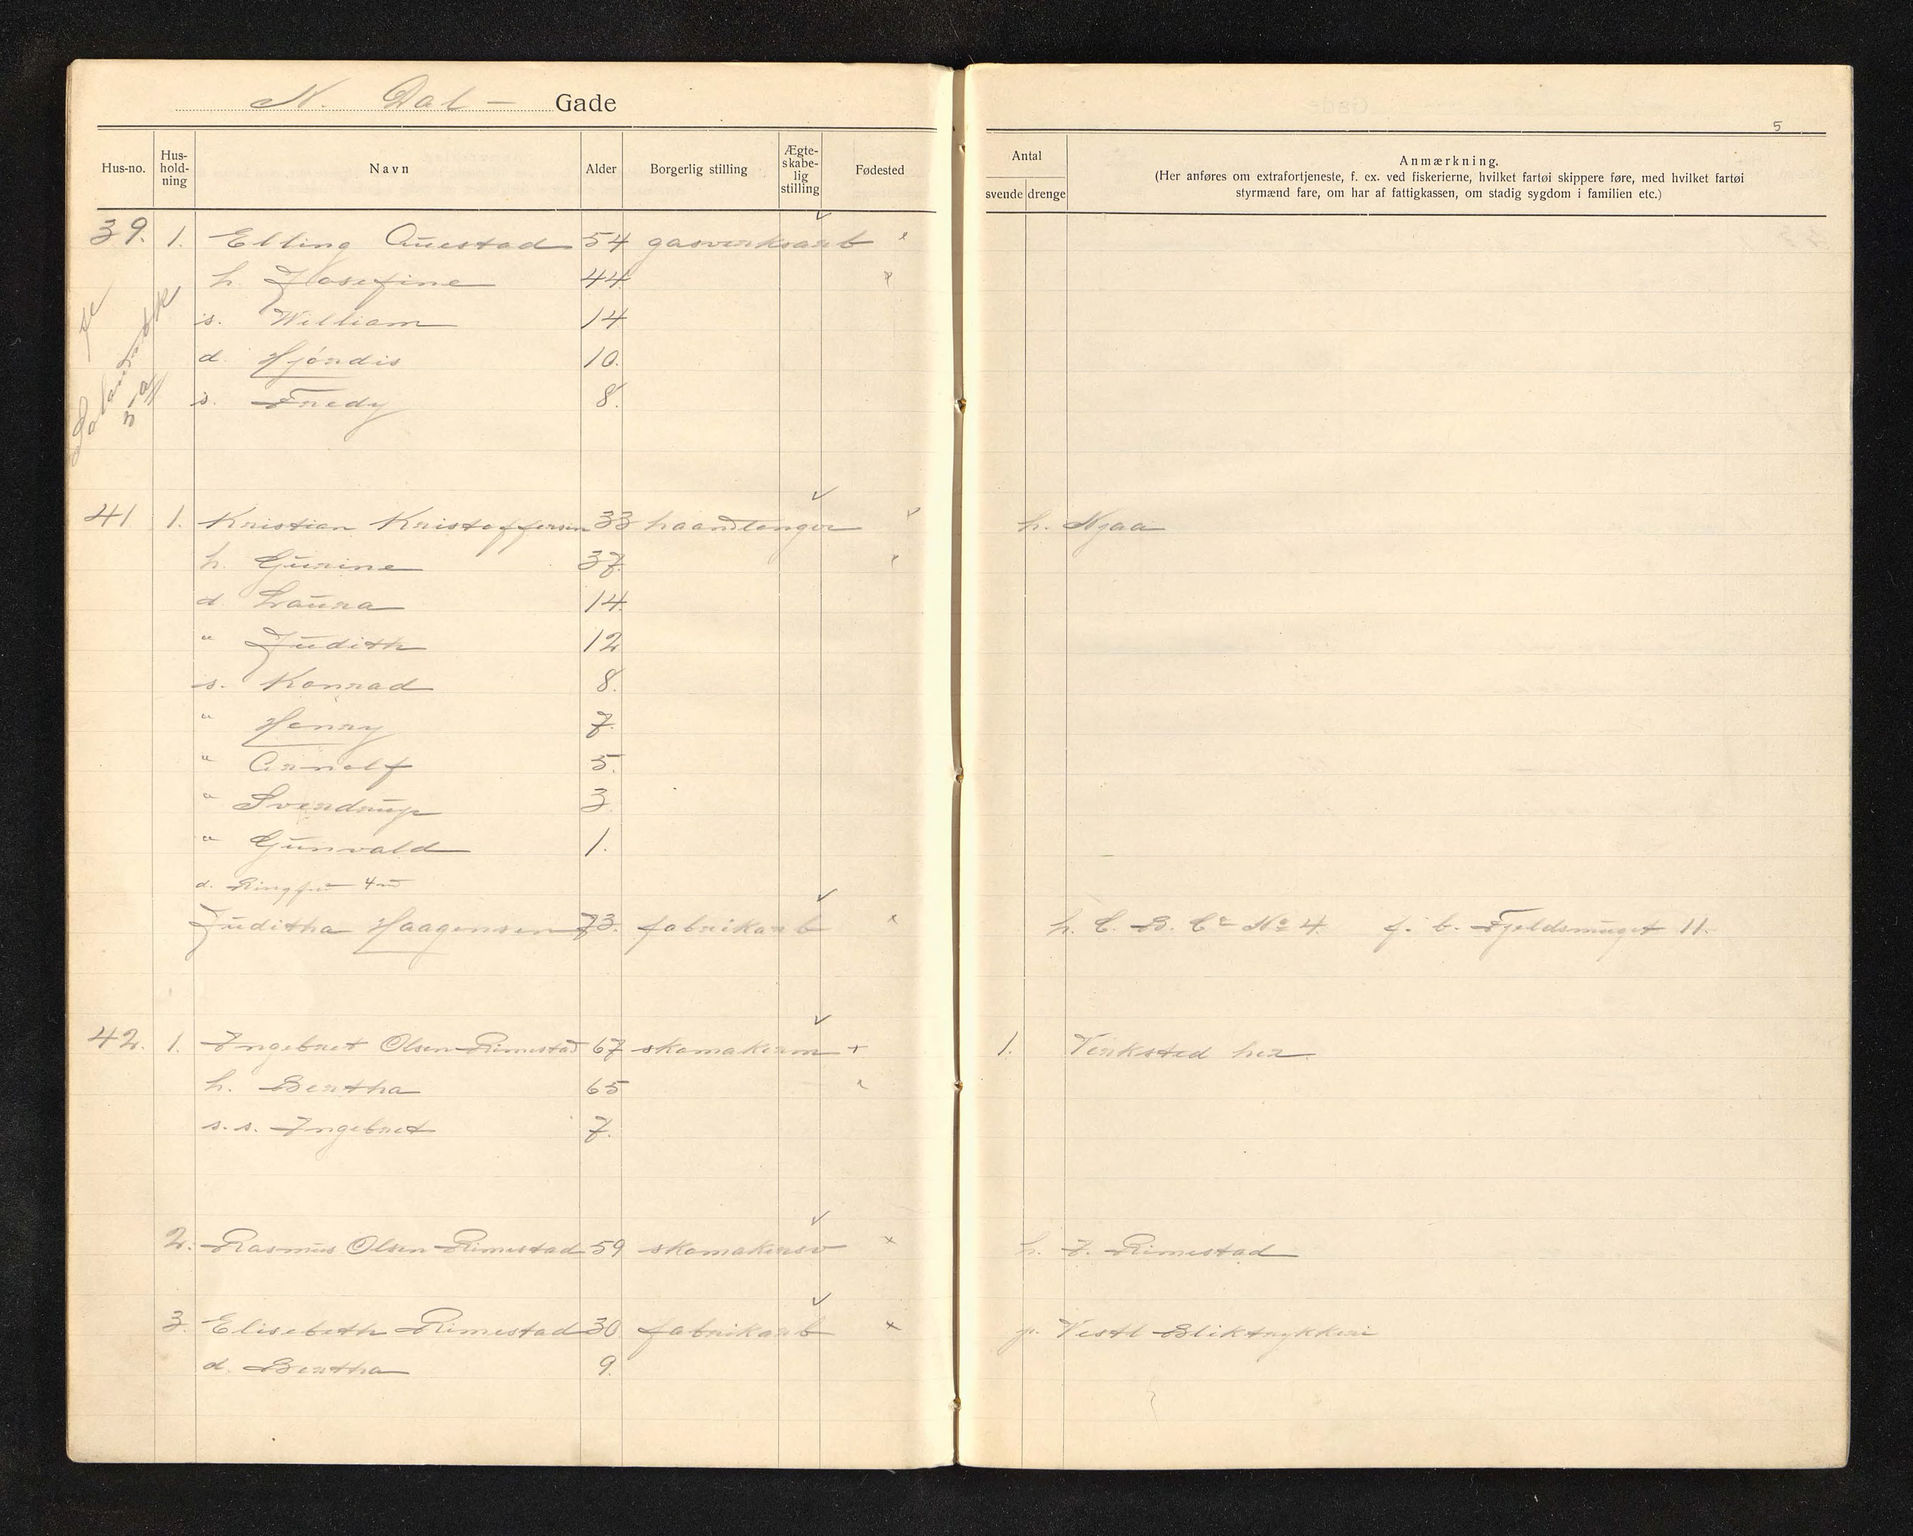 N. Dal - Gade
5
Hus-no. Hus-hold-ning Navn Alder Borgerlig stilling Ægte-skabe-lig stilling Fødested
Antal svende drenge
Anmærkning.
(Her anføres om extrafortjeneste, f. ex. ved fiskerierne, hvilket fartøi skippere føre, med hvilket fartøi
styrmænd fare, om har af fattigkassen, om stadig sygdom i familien etc.)
39. 1. Elling Auestad 54 gasverksarb
h. Josefine 44
s. William 14
d. Hjørdis 10.
s. Fredy 8.
41 1. Kristian Kristoffersen 33 haandlanger h. Njaa
h. Gurine 37.
d. Laura 14.
" Judith 12
s. Konrad 8.
" Henry 7.
" Arnolf 5.
" Sverdrup 3.
" Gunvald 1.
d. 4
Juditha Haagensen 73. fabrikarb h. C. B. Co No 4. f. b. Fjeldsmuget 11.
42. 1. Ingebret Olsen Rimestad 67 skomakerm + 1. Verksted her
h. Bertha 65
s. s. Ingebret 7.
2. Rasmus Olsen Rimestad 59 skomakersv x h. I. Rimestad
3. Elisebeth Rimestad 30 fabrikarb x p. Vestl Bliktrykkeri
d. Bertha 9.